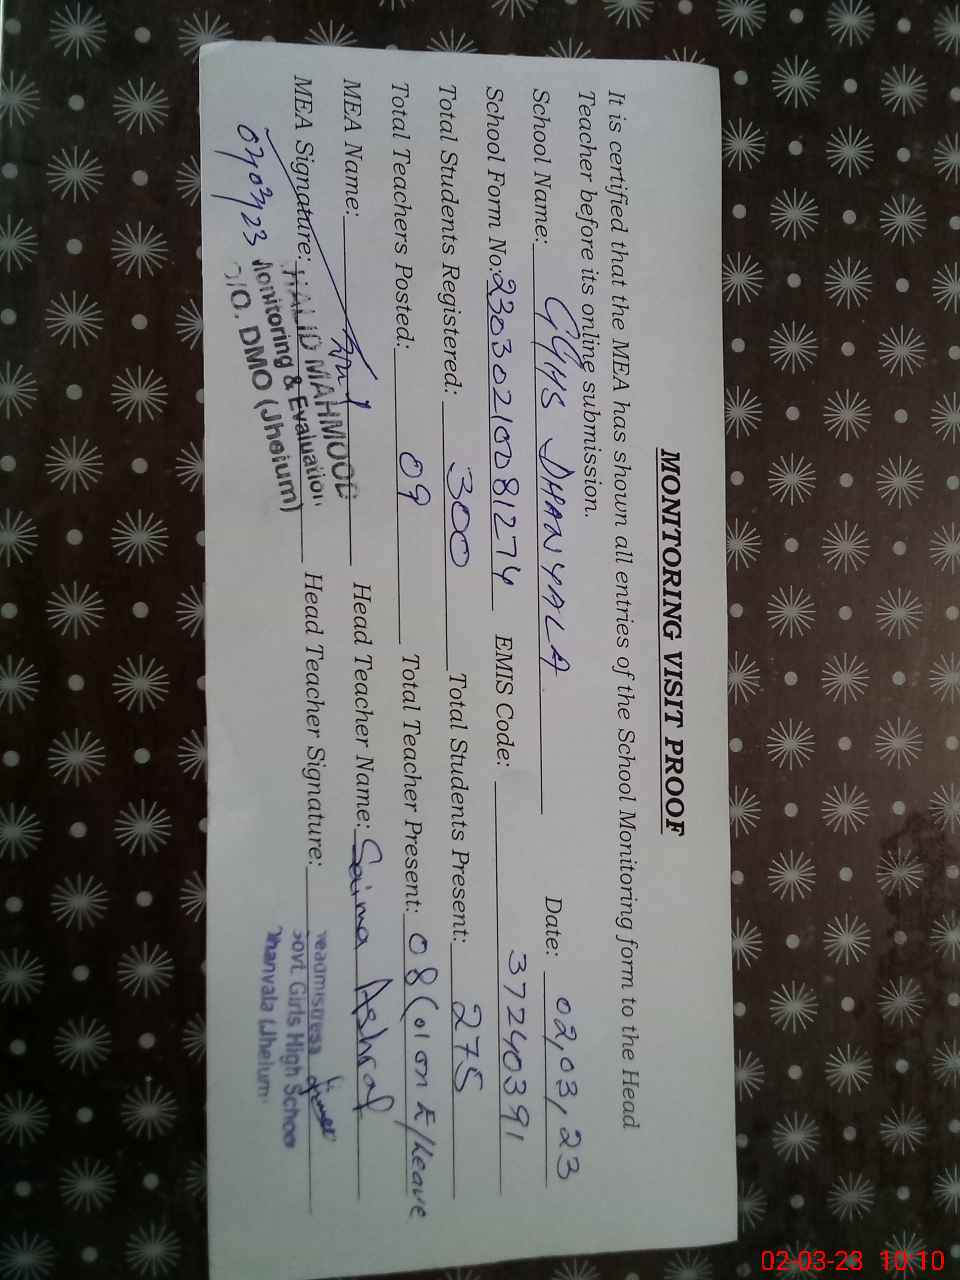 MONITORING VISIT PROOF
It is certified that the MEA has shown all entries of the School Monitoring form to the Head
Teacher before its online submission.
School Name: GGHS DHANYALA Date: 02,03,23
School Form No: 23030210081274 EMIS Code: 37240391
Total Students Registered: 300 Total Students Present: 275
Total Teachers Posted: 09 Total Teacher Present: 08 (01 on E/Leave
MEA Name: Head Teacher Name: Saima Ashraf
MEA Signature: Head Teacher Signature:
KHALID MAHMOOD
Monitoring & Evaluation
O/O. DMO (Jhelum)
02/03/23
Headmistress
Govt. Girls High School
Dhanyala (Jhelum)
02-03-23 10:10